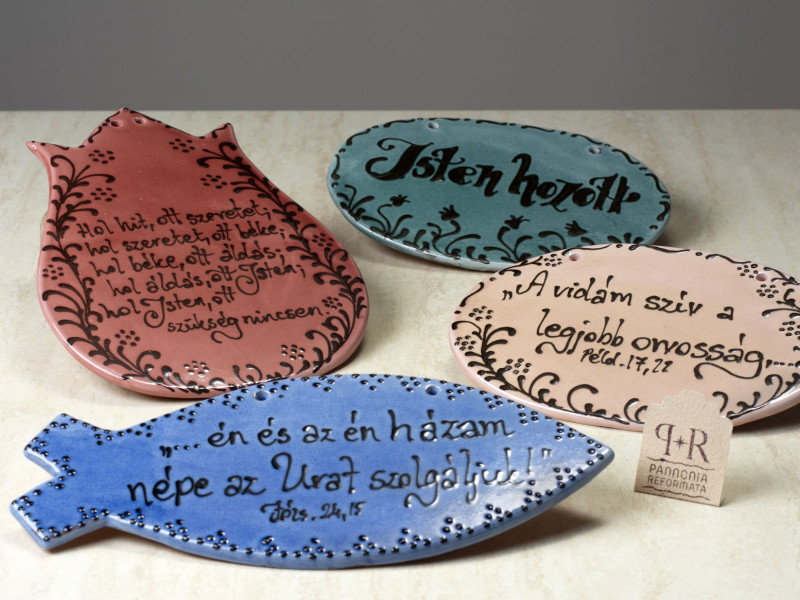 Hol hit, ott szeretet;
hol szeretet, ott béke;
hol béke, ott áldás;
hol áldás, ott Isten;
hol Isten, ott
szükség nincsen.
Isten hozott
„A vidám szív a
legjobb orvosság,...
Péld. 17, 22
„...én és az én házam
népe az Urat szolgáljuk!"
Józs. 24, 15
P+R
PANNONIA
REFORMATA